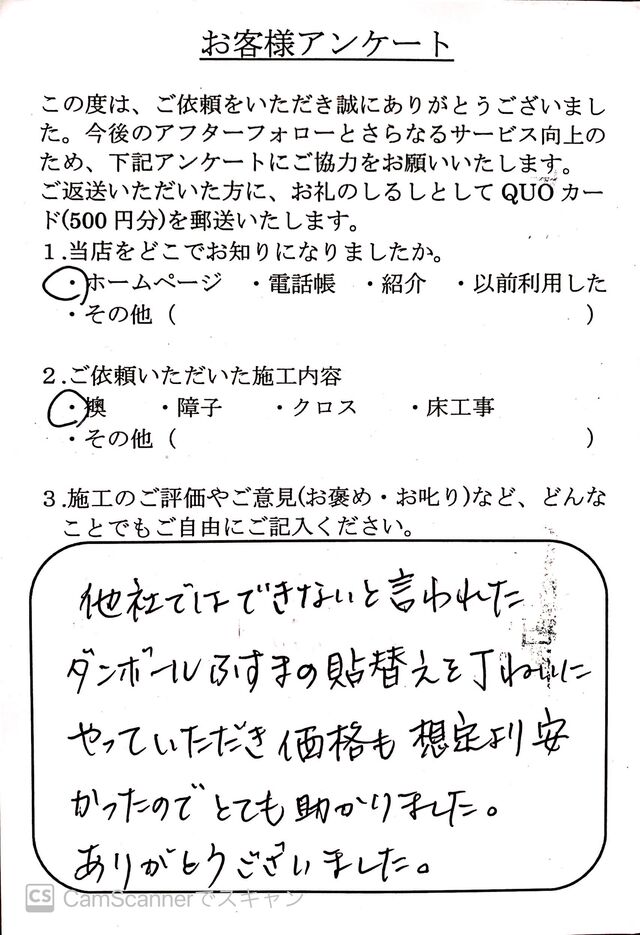 お客様アンケート
この度は、ご依頼をいただき誠にありがとうございまし
た。今後のアフターフォローとさらなるサービス向上の
ため、下記アンケートにご協力をお願いいたします。
ご返送いただいた方に、お礼のしるしとして QUO カー
ド(500 円分)を郵送いたします。
１.当店をどこでお知りになりましたか。
・ホームページ ・電話帳 ・紹介 ・以前利用した
・その他（ ）
２.ご依頼いただいた施工内容
・襖 ・障子 ・クロス ・床工事
・その他（ ）
３.施工のご評価やご意見(お褒め・お叱り)など、どんな
ことでもご自由にご記入ください。
他社ではできないと言われた
ダンボールふすまの貼替えを丁ねいに
やっていただき価格も想定より安
かったのでとても助かりました。
ありがとうございました。
CS CamScannerでスキャン